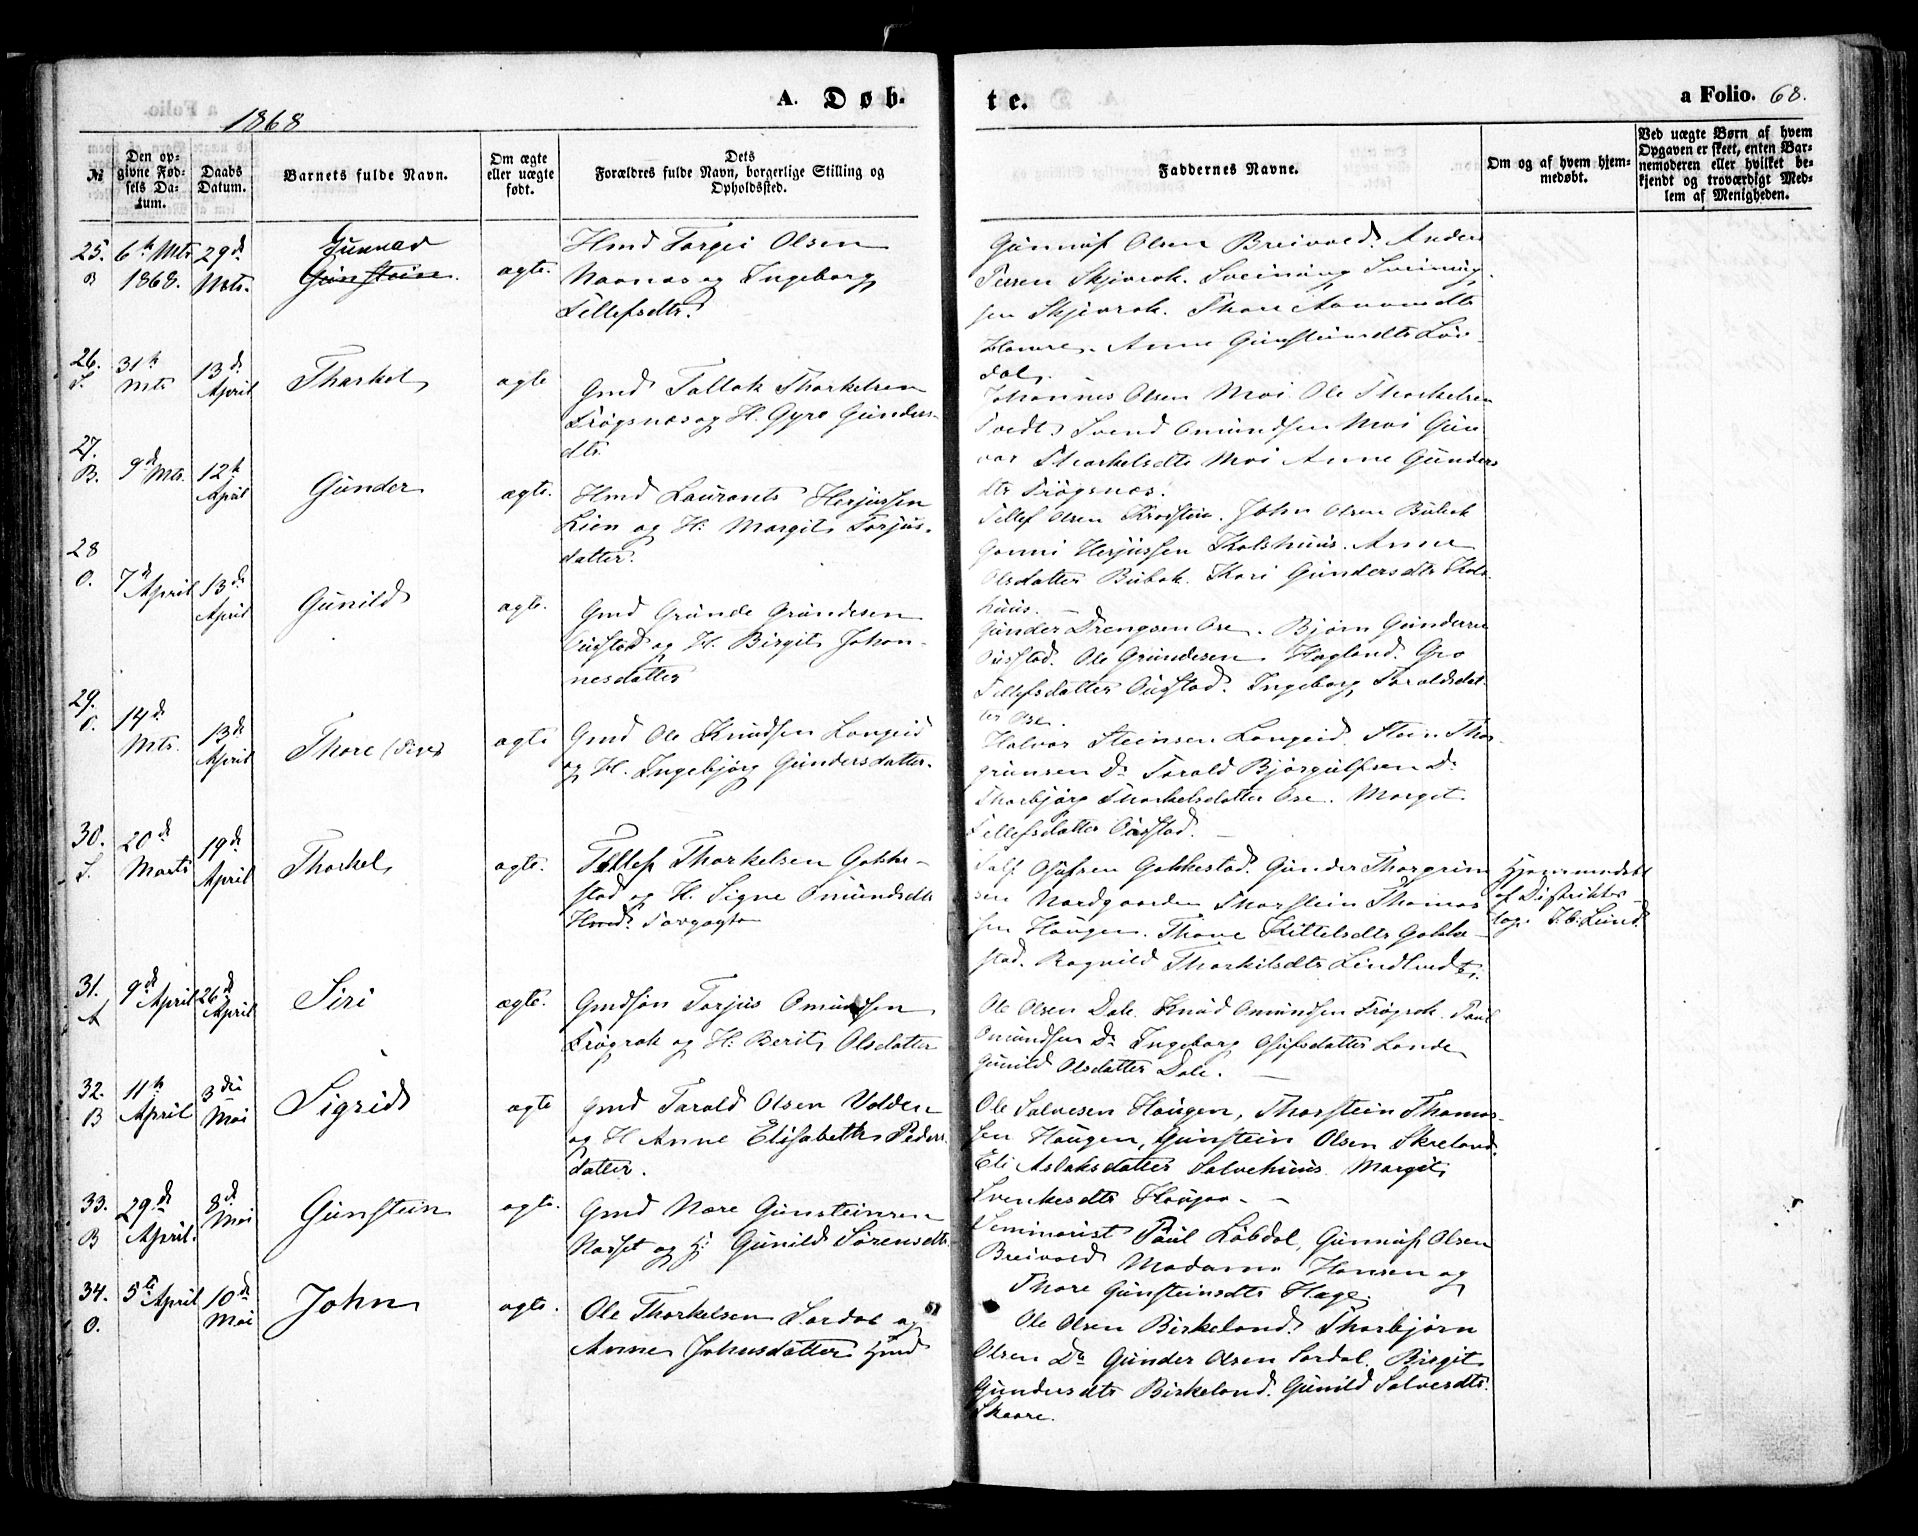 1868
A. Døb-
te.
a Folio. 68.
№
Den op-
givne Fød-
sels Da-
tum.
Daabs
Datum.
Barnets fulde Navn.
Om ægte
eller uægte
født.
Dets
Forældres fulde Navn, borgerlige Stilling og
Opholdssted.
Faddernes Navne.
Om og af hvem hjem-
medøbt.
Ved uægte Børn af hvem
Opgaven er skeet, enten Bar-
nemoderen eller hvilket be-
kjendt og troværdigt Med-
lem af Menigheden.
25. 6th Mts 29d
B 1868. Mts.
Gunnar
Gunstein.
ægte.
Hmd Torgei Olsen
Naanes og Ingeborg
Tellefsdtr.
Gunnuf Olsen Breivold. Anders
Persen Skjevrak. Sveinung Sveinung-
sen Skjevrak. Thore Aanundtr
Hamre. Anne Gunsteinsdtr Løv-
dal.
26. 31th 13d
S. Mts April
Tharkel
ægte
Gmd Tallak Thorkelsen
Frøgsnæs og H. Gyro Gunders-
dtr
Johannes Olsen Moi Ole Thorkelsen
Tvedt Svend Omundsen Moi Gun
vor Thorkelsdtr Moi Anne Gunders
dtr Frøgsnæs.
27. 9d Mts. 12th
B. April
Gunder
ægte.
Hmd Laurants Herjussen
Lien og H. Margit Torjus-
datter.
Tellef Olsen Krosstein. John Olsen Bubak
Gonni Herjussen Kolshuus. Anne
Olsdatter Bubak. Kari Gundersdtr Kols
huus.
28 7d 13d
O. April April
Gunild
ægte.
Gmd Grunde Grundesen
Ousstad og H. Birgit Johan-
nesdatter
Gunder Drengsen Ose. Bjørn Gundersen
Ousstad. Ole Grundesen Hagland. Gro
Tellefsdatter Ousstad. Ingeborg Taraldsdat-
ter Ose.
29. 14d 13d
O. Mts. April
Thore (Pige)
ægte
Gmd Ole Knudsen Langeid
og H. Ingebjørg Gundersdatter.
Halvor Steinsen Langeid. Stein Thor-
grimsen Do Tarald Bjørgulfsen Do
Thorbjørg Thorkelsdatter Ose. Margit
Tellefsdatter Ousstad.
30. 20d 19d
S. Marts April
Thorkel
ægte.
Tellef Thorkelsen Gakke-
stad og H. Signe Omundsdtr
Hmd.
Salf Osufsen Gakkestad. Gunder Thorgrim
sen Nordgaarden Thorstein Thomas
sen Haugen. Thone Kittelsdtr Gakke-
stad. Ragnild Thorkilsdtr Lindland.
Hjemmedøbt
af Distrikts-
læge J. C. Lund.
31. 9d 26d
A April April
Siri
ægte.
Gmdsøn Torjus Omundsen
Frøgrak og H. Berit Olsdatter
Ole Olsen Dale. Knud Omundsen Frøgrak. Paul
Omundsen Do Ingeborg Osufsdatter Lande
Gunild Olsdatter Dale.
32. 11th 3die
B April Mai
Sigrid
ægte
Gmd Tarald Olsen Valden
og H Anne Elisabeth Peders-
datter.
Ole Salvesen Haugen, Thorstein Thomas-
sen Haugen, Gunstein Olsen Skreland.
Eli Aslaksdatter Salvehuus. Margit
Svenkesdtr Haugaa.
33. 29d 8d
B April. Mai
Gunstein
ægte.
Gmd Nere Gunsteinsen
Naset og H. Gunild Sørensdtr
Seminarist Paul Løbdal, Gunnuf Olsen
Breivold Madame Hansen og
Thore Gunsteinsdtr Hage.
34. 5te April 10d
O. Mai
John
ægte.
Ole Thorkelsen Sordal og
Anne Johnsdatter Hmd
Ole Olsen Birkeland Thorbjørn
Olsen Do Gunder Olsen Sordal. Birgit
Gundersdtr Birkeland. Gunild Salvesdtr
Skaare.